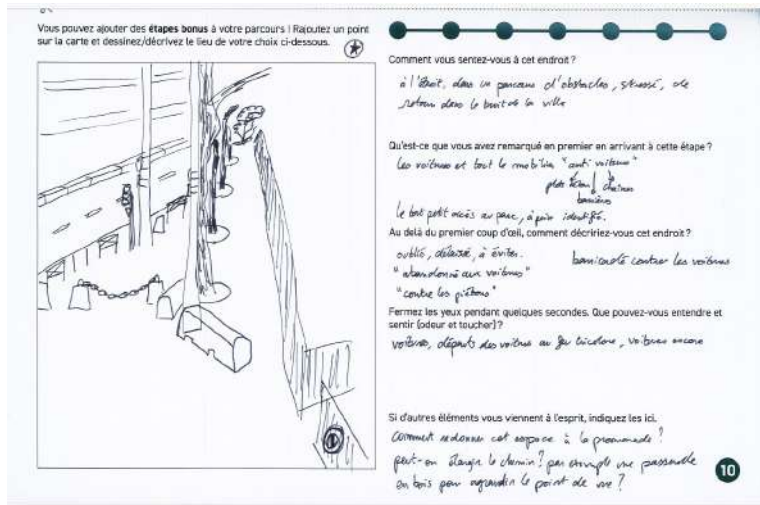 Vous pouvez ajouter des étapes bonus à votre parcours ! Rajoutez un point
sur la carte et dessinez/décrivez le lieu de votre choix ci-dessous.
Comment vous sentez-vous à cet endroit ?
à l'étroit, dans un parcours d'obstacles, stressé, de
retour dans le bruit de la ville
Qu'est-ce que vous avez remarqué en premier en arrivant à cette étape ?
Les voitures et tout le mobilier "anti voitures"
plots béton chaînes
barrières
le tout petit accès au parc, à peine identifié.
Au delà du premier coup d'œil, comment décririez-vous cet endroit ?
oublié, délaissé, à éviter. barricadé contre les voitures
"abandonné aux voitures"
"contre les piétons"
Fermez les yeux pendant quelques secondes. Que pouvez-vous entendre et
sentir (odeur et toucher) ?
voitures, départs des voitures au feu tricolore, voitures encore
Si d'autres éléments vous viennent à l'esprit, indiquez les ici.
Comment redonner cet espace à la promenade ?
peut-on élargir le chemin ? par exemple une passerelle
en bois pour agrandir le point de vue ?
10